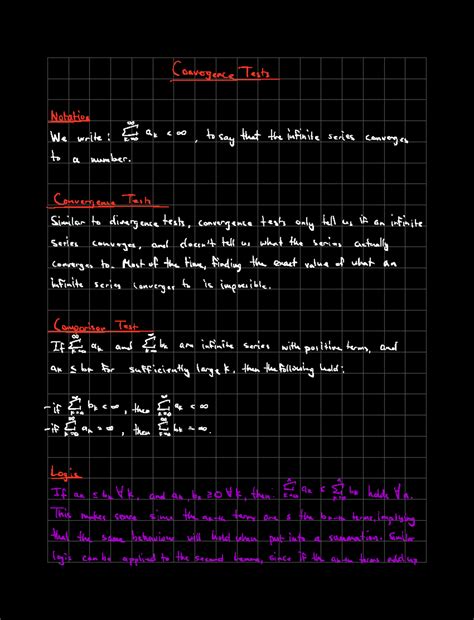 Convergence Tests
Notation
We write: ∞∑k=0 aₖ < ∞, to say that the infinite series converges
to a number.
Convergence Tests
Similar to divergence tests, convergence tests only tell us if an infinite
series converges, and doesn't tell us what the series actually
converges to. Most of the time, finding the exact value of what an
infinite series converges to is impossible.
Comparison Test
If ∞∑k=0 aₖ and ∞∑k=0 bₖ are infinite series with positive terms, and
aₖ ≤ bₖ for sufficiently large k, then the following hold:
- if ∞∑k=0 bₖ < ∞, then ∞∑k=0 aₖ < ∞
- if ∞∑k=0 aₖ = ∞, then ∞∑k=0 bₖ = ∞.
Logic
If aₖ ≤ bₖ ∀k, and aₖ, bₖ ≥ 0 ∀k, then: n∑k=0 aₖ ≤ n∑k=0 bₖ holds ∀n.
This makes sense since the terms are ≤ the terms, implying
that the same behaviour will hold when put into a summation. Similar
logic can be applied to the second, since if the terms